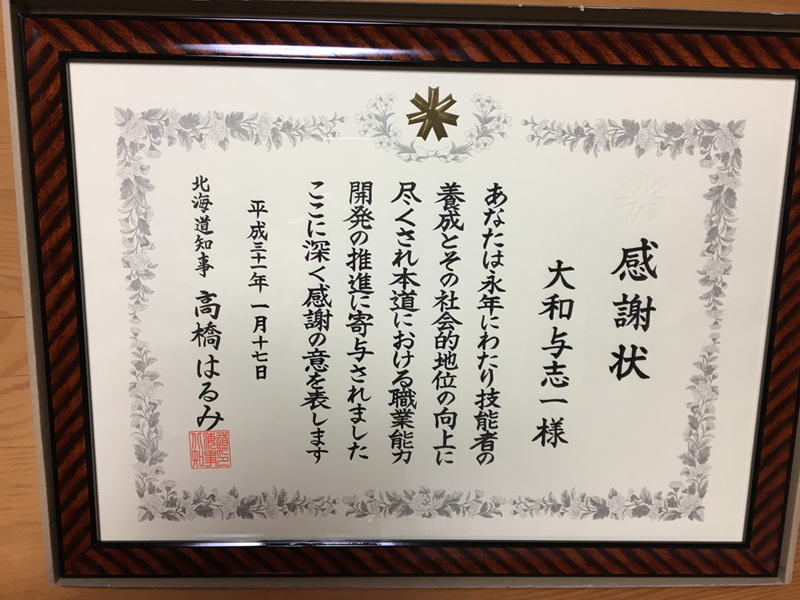 感謝状
大和与志一様
あなたは永年にわたり技能者の
養成とその社会的地位の向上に
尽くされ本道における職業能力
開発の推進に寄与されました
ここに深く感謝の意を表します
平成三十一年一月十七日
北海道知事 高橋はるみ
北海道知事之印